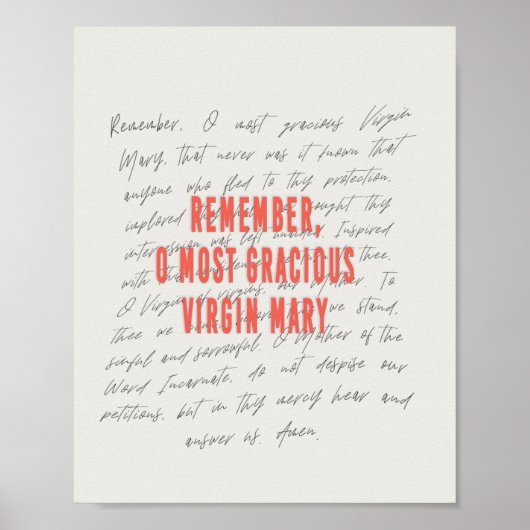 Remember, O most gracious Virgin
Mary, that never was it known that
anyone who fled to thy protection,
implored thy sought thy
intercession was left unaided. Inspired
with this thee,
O Virgin of virgins, our Mother. To
thee we before we stand,
sinful and sorrowful. O Mother of the
Word Incarnate, do not despise our
petitions, but in thy mercy hear and
answer us. Amen.
REMEMBER,
O MOST GRACIOUS
VIRGIN MARY